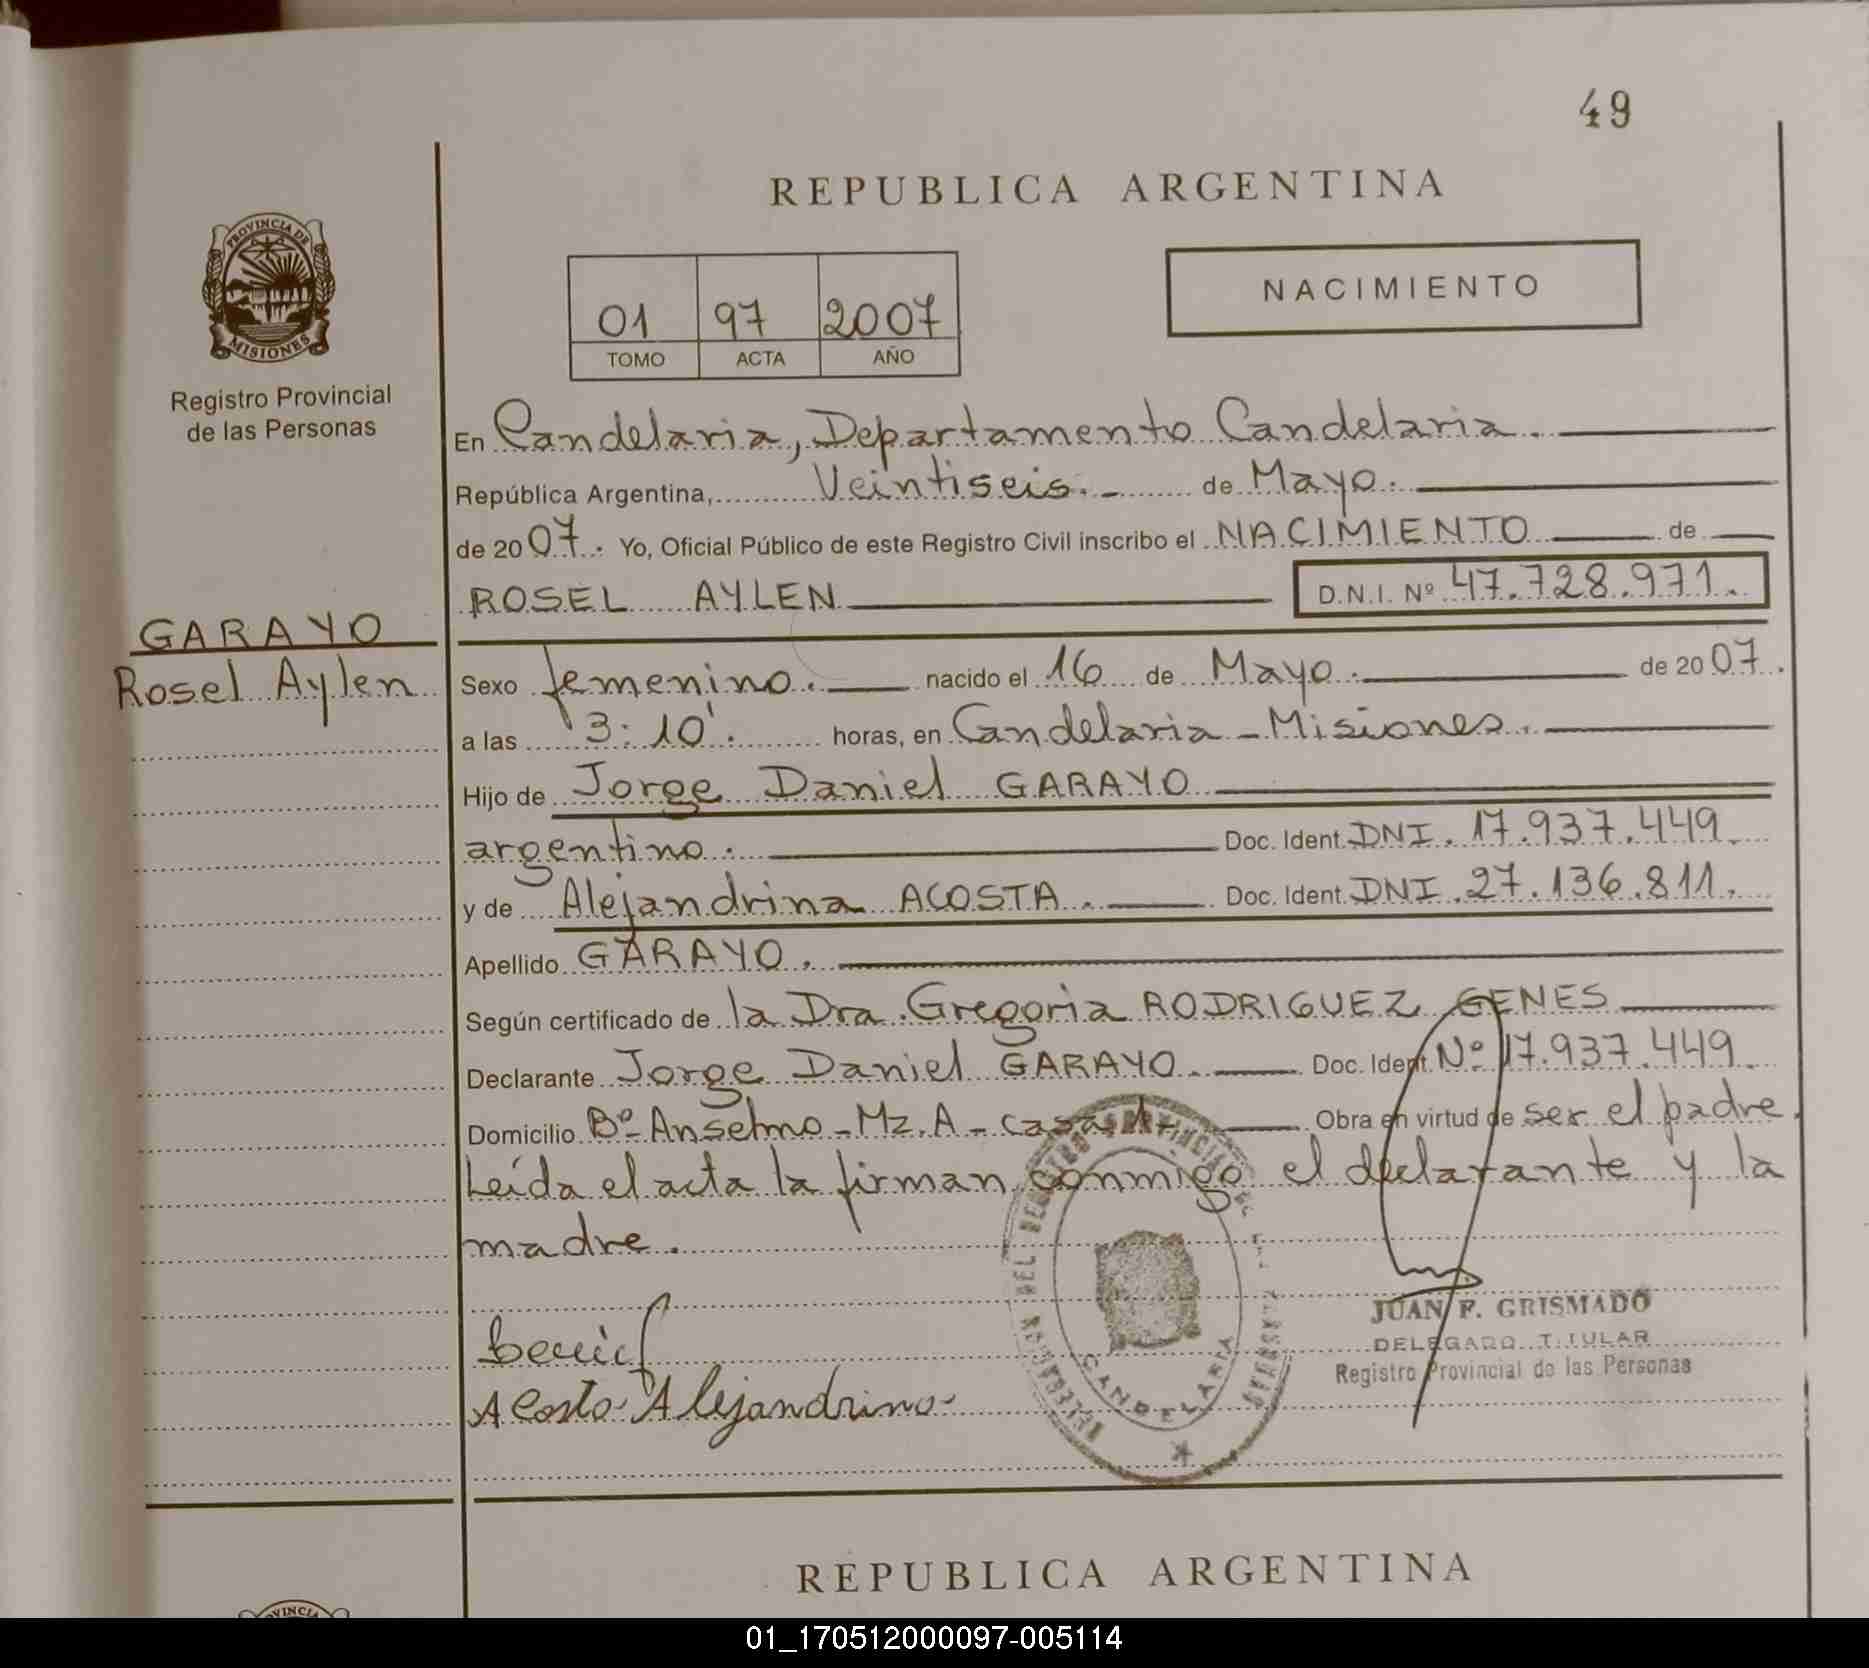 49
REPUBLICA ARGENTINA
PROVINCIA DE
MISIONES
Registro Provincial
de las Personas
01 97 2007
TOMO ACTA AÑO
NACIMIENTO
En Candelaria, Departamento Candelaria.
República Argentina, Veintiseis. de Mayo.
de 2007. Yo, Oficial Público de este Registro Civil inscribo el NACIMIENTO de
ROSEL AYLEN D.N.I. Nº 47.728.971.
GARAYO
Rosel Aylen
Sexo femenino. nacido el 16 de Mayo. de 2007.
a las 3:10'. horas, en Candelaria - Misiones.
Hijo de Jorge Daniel GARAYO
argentino. Doc. Ident. DNI. 17.937.449.
y de Alejandrina ACOSTA. Doc. Ident. DNI. 27.136.811.
Apellido GARAYO.
Según certificado de la Dra. Gregoria RODRIGUEZ GENES
Declarante Jorge Daniel GARAYO. Doc. Ident. Nº 17.937.449.
Domicilio Bº Anselmo - Mz. A - casa Obra en virtud de ser el padre.
Leída el acta la firman conmigo el declarante y la
madre.
JUAN F. GRISMADO
DELEGADO TITULAR
Registro Provincial de las Personas
Acosta Alejandrina
CANDELARIA
REPUBLICA ARGENTINA
01_170512000097-005114